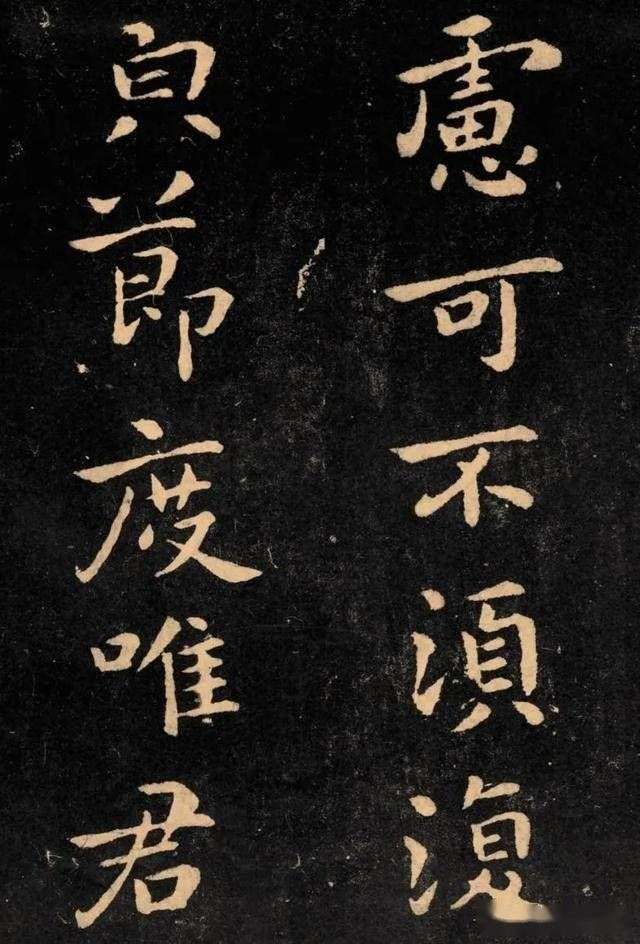 慮可不須復
具節度唯君